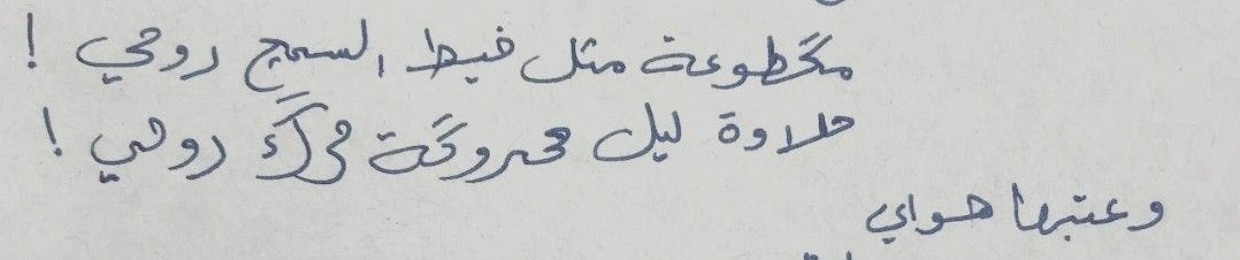 مگطوعة مثل خيط السمچ روحي !
حلاوة ليل محروگة حرگ روحي !
وعتبها هواي